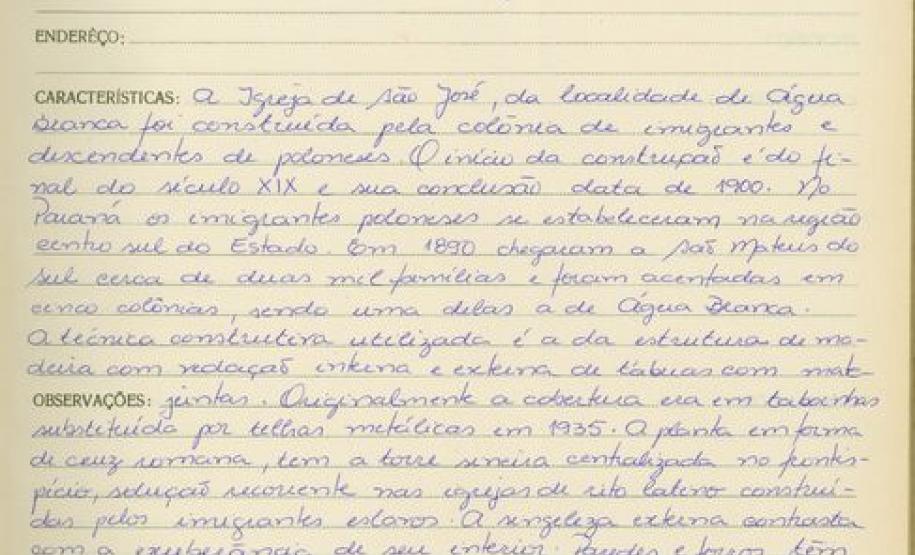 ENDERÊÇO:
CARACTERÍSTICAS: A Igreja de São José, da localidade de Água
Branca foi construída pela colônia de imigrantes e
descendentes de poloneses. O início da construção é do fi-
nal do século XIX e sua conclusão data de 1900. No
Paraná os imigrantes poloneses se estabeleceram na região
centro sul do Estado. Em 1890 chegaram a São Mateus do
Sul cerca de duas mil famílias e foram acentadas em
cinco colônias, sendo uma delas a de Água Branca.
A técnica construtiva utilizada é a da estrutura de ma-
deira com vedação interna e externa de tábuas com mata-
OBSERVAÇÕES: juntas. Originalmente a cobertura era em tabuinhas
substituída por telhas metálicas em 1935. A planta em forma
de cruz romana, tem a torre sineira centralizada no frontis-
pício, solução recorrente nas igrejas de rito latino construí-
das pelos imigrantes eslavos. A singeleza externa contrasta
com a exuberância de seu interior. Paredes e forros têm